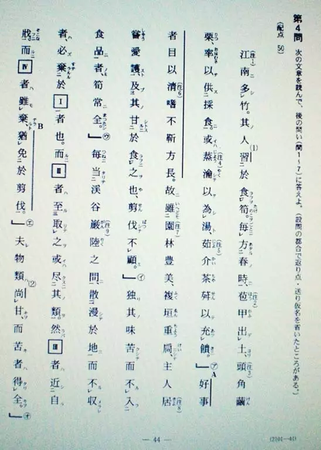 第4問 次の文章を読んで、後の問い(問1～7)に答えよ。(設問の都合で返り点・送り仮名を省いたところがある。)
(配点 50)
江南多竹。其人習於食筍。毎方春時、苞甲出土、頭角繭
栗、率以供採食。或蒸瀹以為湯、茹介茶荈以充饋。(ア)好事
者目以清嗜不靳方長。故雖園林豊美、複垣重扃、主人居
嘗愛護、及其甘於食之也、剪伐不顧。(イ)独其味苦而不入
食品者、筍常全。(ウ)毎当渓谷巌陸之間、散漫於地而不収
者、必棄於Ⅰ者也。而Ⅱ者至取之或尽其類。然Ⅲ者近自
戕而Ⅳ者雖棄、猶免於剪伐。(エ)夫物類尚甘、而苦者得全。(オ)
A
B
— 44 —